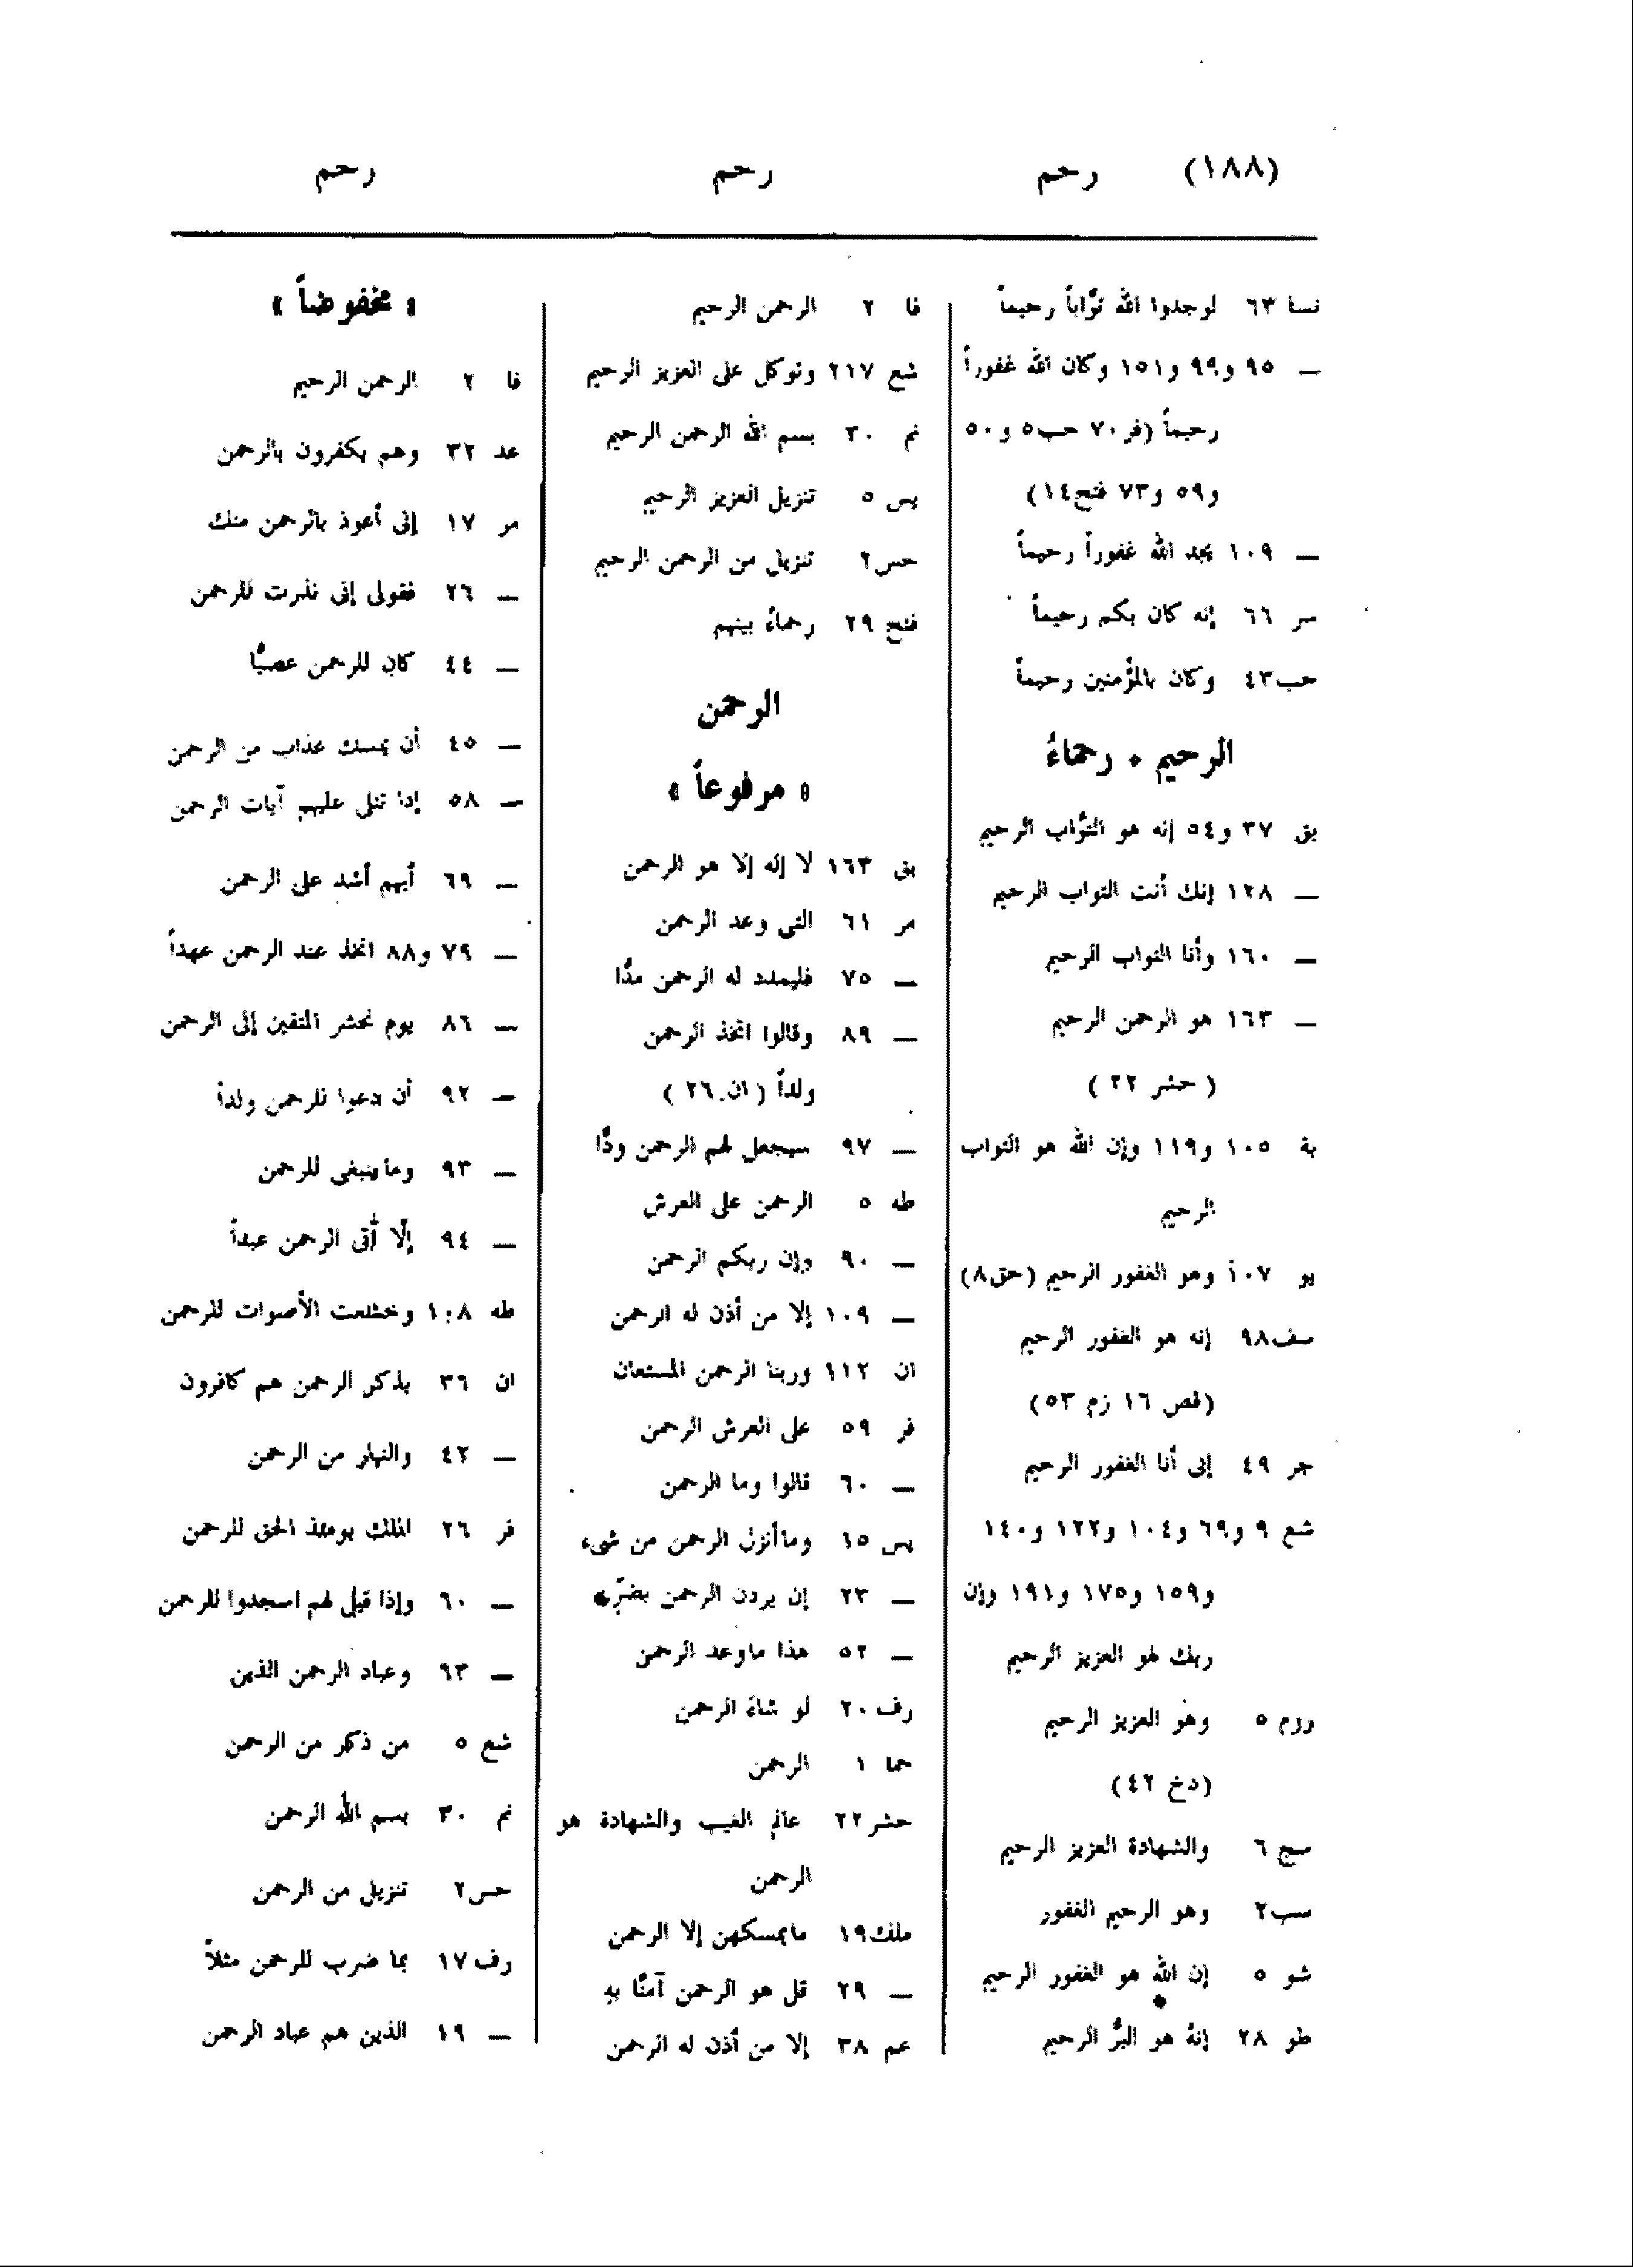 (١٨٨) رحم رحم رحم
نسا ٦٣ لوجدوا الله توَّاباً رحيماً
— ٩٥ و٩٩ و١٥١ وكان الله غفوراً
رحيماً (فر٧٠ حب٥ و٥٠
و٥٩ و٧٣ فتح١٤)
— ١٠٩ يجد الله غفوراً رحيماً
سر ٦٦ إنه كان بكم رحيماً
حب٤٣ وكان بالمؤمنين رحيماً
الرحيم * رحماءُ
بق ٣٧ و٥٤ إنه هو التوَّاب الرحيم
— ١٢٨ إنك أنت التواب الرحيم
— ١٦٠ وأنا التواب الرحيم
— ١٦٣ هو الرحمن الرحيم
(حشر ٢٢)
بة ١٠٥ و١١٩ وإن الله هو التواب
الرحيم
يو ١٠٧ وهو الغفور الرحيم (حق٨)
سف٩٨ إنه هو الغفور الرحيم
(قص ١٦ زم ٥٣)
جر ٤٩ إنى أنا الغفور الرحيم
شع ٩ و٦٩ و١٠٤ و١٢٢ و١٤٠
و١٥٩ و١٧٥ و١٩١ وإن
ربك لهو العزيز الرحيم
روم ٥ وهو العزيز الرحيم
(دخ ٤٢)
سج ٦ والشهادة العزيز الرحيم
سب٢ وهو الرحيم الغفور
شو ٥ إن الله هو الغفور الرحيم
طو ٢٨ إنهُ هو البرُّ الرحيم
فا ٢ الرحمن الرحيم
شع ٢١٧ وتوكل على العزيز الرحيم
نم ٣٠ بسم الله الرحمن الرحيم
يس ٥ تنزيل العزيز الرحيم
حس٢ تنزيل من الرحمن الرحيم
فتح ٢٩ رحماءُ بينهم
الرحمن
« مرفوعاً »
بق ١٦٣ لا إله إلا هو الرحمن
مر ٦١ التى وعد الرحمن
— ٧٥ فليمدد له الرحمن مدًّا
— ٨٩ وقالوا اتخذ الرحمن
ولداً (ان. ٢٦)
— ٩٧ سيجعل لهم الرحمن ودًّا
طه ٥ الرحمن على العرش
— ٩٠ وإن ربكم الرحمن
— ١٠٩ إلا من أذن له الرحمن
ان ١١٢ وربنا الرحمن المستعان
فر ٥٩ على العرش الرحمن
— ٦٠ قالوا وما الرحمن
يس ١٥ وما أنزل الرحمن من شىء
— ٢٣ إن يردن الرحمن بضرٍّ*
— ٥٢ هذا ماوعد الرحمن
رف ٢٠ لو شاءَ الرحمن
حما ١ الرحمن
حشر٢٢ عالم الغيب والشهادة هو
الرحمن
ملك١٩ مايمسكهن إلا الرحمن
— ٢٩ قل هو الرحمن آمنَّا بهِ
عم ٣٨ إلا من أذن له الرحمن
« مخفوضاً »
فا ٢ الرحمن الرحيم
عد ٣٢ وهم يكفرون بالرحمن
مر ١٧ إنى أعوذ بالرحمن منك
— ٢٦ فقولى إنى نذرت للرحمن
— ٤٤ كان للرحمن عصيًّا
— ٤٥ أن يمسك عذاب من الرحمن
— ٥٨ إذا تتلى عليهم آيات الرحمن
— ٦٩ أيهم أشد على الرحمن
— ٧٩ و٨٨ اتخذ عند الرحمن عهداً
— ٨٦ يوم نحشر المتقين إلى الرحمن
— ٩٢ أن دعوا للرحمن ولداً
— ٩٣ وماينبغى للرحمن
— ٩٤ إلَّا آتى الرحمن عبداً
طه ١٠٨ وخشعت الأصوات للرحمن
ان ٣٦ بذكر الرحمن هم كافرون
— ٤٢ والنهار من الرحمن
فر ٢٦ الملك يومئذ الحق للرحمن
— ٦٠ وإذا قيل لهم اسجدوا للرحمن
— ٦٣ وعباد الرحمن الذين
شع ٥ من ذكر من الرحمن
نم ٣٠ بسم الله الرحمن
حس٢ تنزيل من الرحمن
رف ١٧ بما ضرب للرحمن مثلاً
— ١٩ الذين هم عباد الرحمن